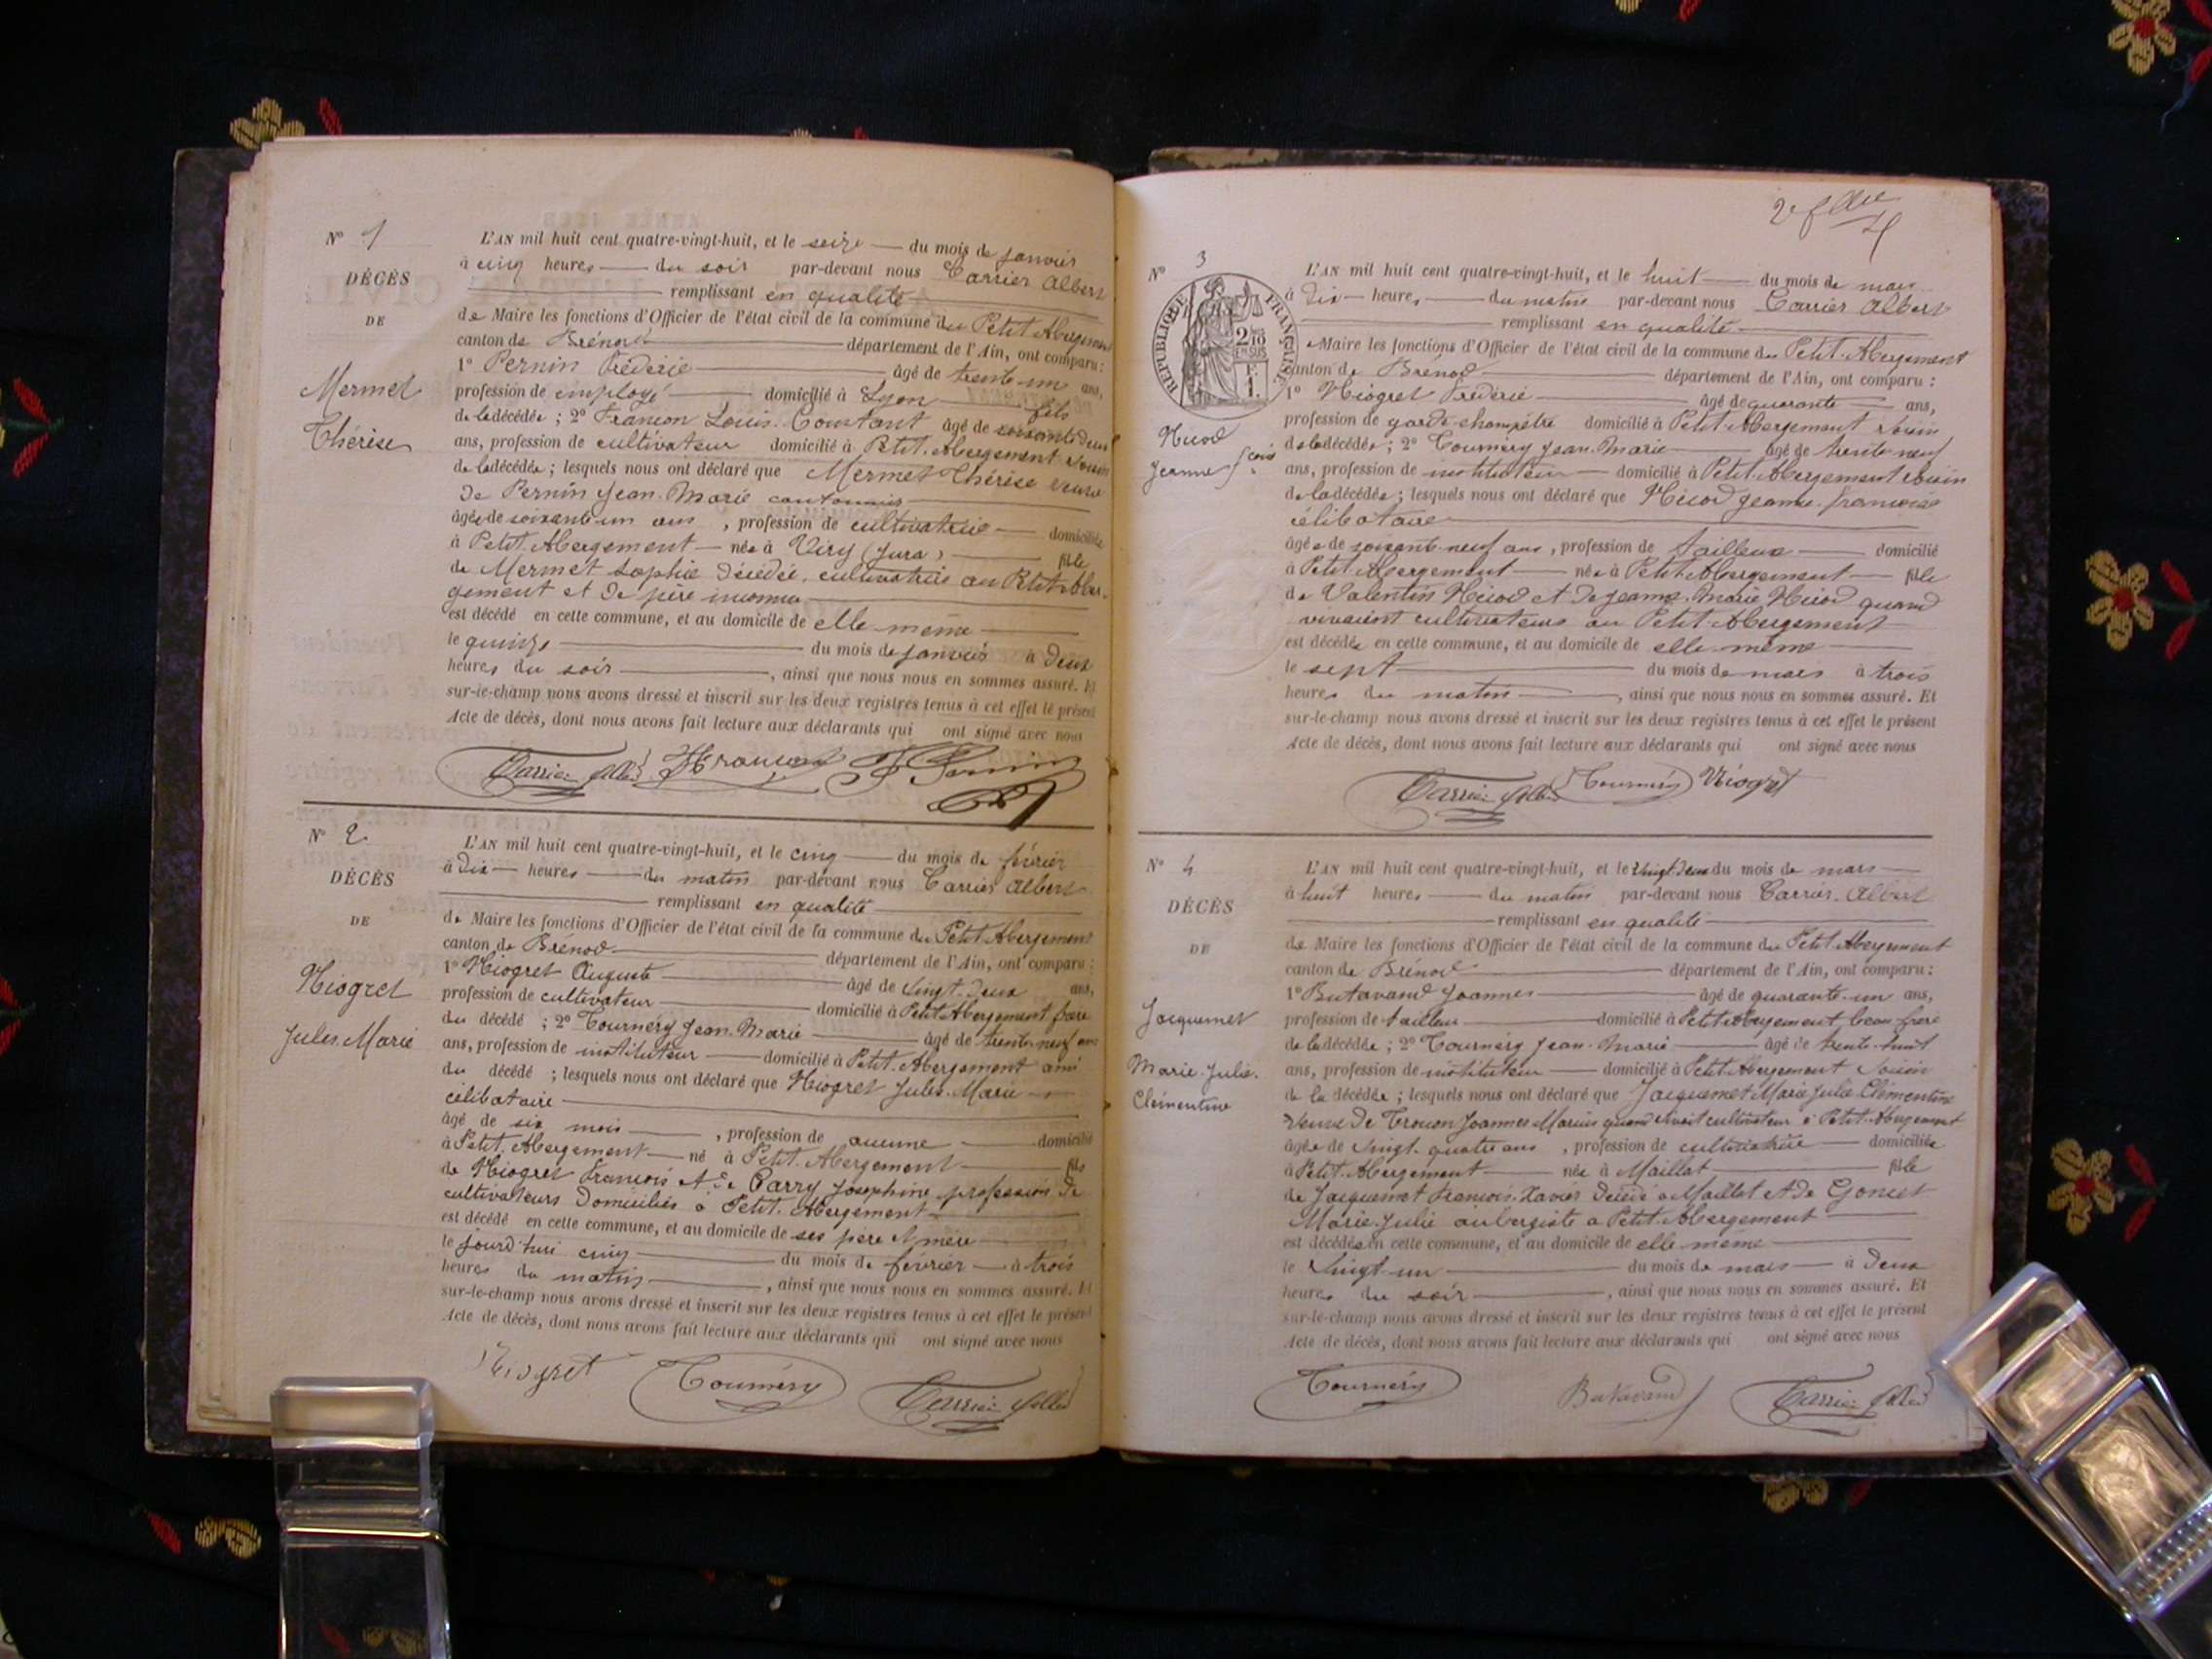 N° 1
DÉCÈS
DE
Mermet
Thérèse
L'AN mil huit cent quatre-vingt-huit, et le seize du mois de janvier
à cinq heures du soir par-devant nous Carrier Albert
remplissant en qualité
de Maire les fonctions d'Officier de l'état civil de la commune du Petit Abergement
canton de Brénod département de l'Ain, ont comparu :
1° Pernin Frédéric âgé de trente-un ans,
profession de employé domicilié à Lyon fils
de la décédée ; 2° Françon Louis Constant âgé de soixante deux
ans, profession de cultivateur domicilié à Petit. Abergement voisin
de la décédée ; lesquels nous ont déclaré que Mermet Thérèse veuve
de Pernin Jean-Marie cantonnier
âgée de soixante-un ans , profession de cultivatrice domiciliée
à Petit. Abergement née à Viry (Jura) fille
de Mermet Sophie décédée, cultivatrice au Petit Aber-
gement et de père inconnu
est décédé en cette commune, et au domicile de elle même
le quinze du mois de janvier à deux
heures du soir , ainsi que nous nous en sommes assuré. Et
sur-le-champ nous avons dressé et inscrit sur les deux registres tenus à cet effet le présent
Acte de décès, dont nous avons fait lecture aux déclarants qui ont signé avec nous
Carrier Albert Françon F Pernin
N° 2
DÉCÈS
DE
Niogret
Jules. Marie
L'AN mil huit cent quatre-vingt-huit, et le cinq du mois de février
à dix heures du matin par-devant nous Carrier Albert
remplissant en qualité
de Maire les fonctions d'Officier de l'état civil de la commune du Petit Abergement
canton de Brénod département de l'Ain, ont comparu :
1° Niogret Auguste âgé de vingt-deux ans,
profession de cultivateur domicilié à Petit Abergement frère
du décédé ; 2° Tournéry Jean. Marie âgé de trente-neuf ans
ans, profession de instituteur domicilié à Petit. Abergement ami
du décédé ; lesquels nous ont déclaré que Niogret Jules. Marie
célibataire
âgé de six mois , profession de aucune domicilié
à Petit. Abergement né à Petit. Abergement fils
de Niogret François et de Carry Joséphine profession de
cultivateurs domiciliés à Petit. Abergement
est décédé en cette commune, et au domicile de ses père et mère
le jourd'hui cinq du mois de février à trois
heures du matin , ainsi que nous nous en sommes assuré. Et
sur-le-champ nous avons dressé et inscrit sur les deux registres tenus à cet effet le présent
Acte de décès, dont nous avons fait lecture aux déclarants qui ont signé avec nous
Niogret Tournéry Carrier Albert
N° 3
RÉPUBLIQUE FRANÇAISE
Nicod
Jeanne fçoise
L'AN mil huit cent quatre-vingt-huit, et le huit du mois de mars
à dix heures du matin par-devant nous Carrier Albert
remplissant en qualité
Maire les fonctions d'Officier de l'état civil de la commune du Petit. Abergement
canton de Brénod département de l'Ain, ont comparu :
1° Niogret Frédéric âgé de quarante ans,
profession de garde-champêtre domicilié à Petit. Abergement voisin
de la décédée ; 2° Tournéry Jean. Marie âgé de trente-neuf
ans, profession de instituteur domicilié à Petit. Abergement voisin
de la décédée ; lesquels nous ont déclaré que Nicod Jeanne. Françoise
célibataire
âgée de soixante-neuf ans, profession de tailleuse domicilié
à Petit. Abergement née à Petit. Abergement fille
de Valentin Nicod et de Jeanne. Marie Nicod quand
vivaient cultivateurs au Petit-Abergement
est décédée en cette commune, et au domicile de elle-même
le sept du mois de mars à trois
heures du matin , ainsi que nous nous en sommes assuré. Et
sur-le-champ nous avons dressé et inscrit sur les deux registres tenus à cet effet le présent
Acte de décès, dont nous avons fait lecture aux déclarants qui ont signé avec nous
Carrier Albert Tournéry Niogret
N° 4
DÉCÈS
DE
Jacquemet
Marie. Julie.
Clémentine
L'AN mil huit cent quatre-vingt-huit, et le vingt-deux du mois de mars
à huit heures du matin par-devant nous Carrier. Albert
remplissant en qualité
de Maire les fonctions d'Officier de l'état civil de la commune du Petit. Abergement
canton de Brénod département de l'Ain, ont comparu :
1° Butavand Joannes âgé de quarante-un ans,
profession de tailleur domicilié à Petit Abergement beau-frère
de la décédée ; 2° Tournéry Jean. Marie âgé de trente-huit
ans, profession de instituteur domicilié à Petit Abergement voisin
de la décédée ; lesquels nous ont déclaré que Jacquemet Marie Julie Clémentine
veuve de Joannes Marius quand vivait cultivateur à Petit. Abergement
âgée de vingt-quatre ans , profession de cultivatrice domiciliée
à Petit. Abergement née à Maillat fille
de Jacquemet François. Xavier décédé à Maillat et de Goncet
Marie. Julie aubergiste à Petit. Abergement
est décédée en cette commune, et au domicile de elle même
le vingt-un du mois de mars à deux
heures du soir , ainsi que nous nous en sommes assuré. Et
sur-le-champ nous avons dressé et inscrit sur les deux registres tenus à cet effet le présent
Acte de décès, dont nous avons fait lecture aux déclarants qui ont signé avec nous
Tournéry Butavand Carrier Albert